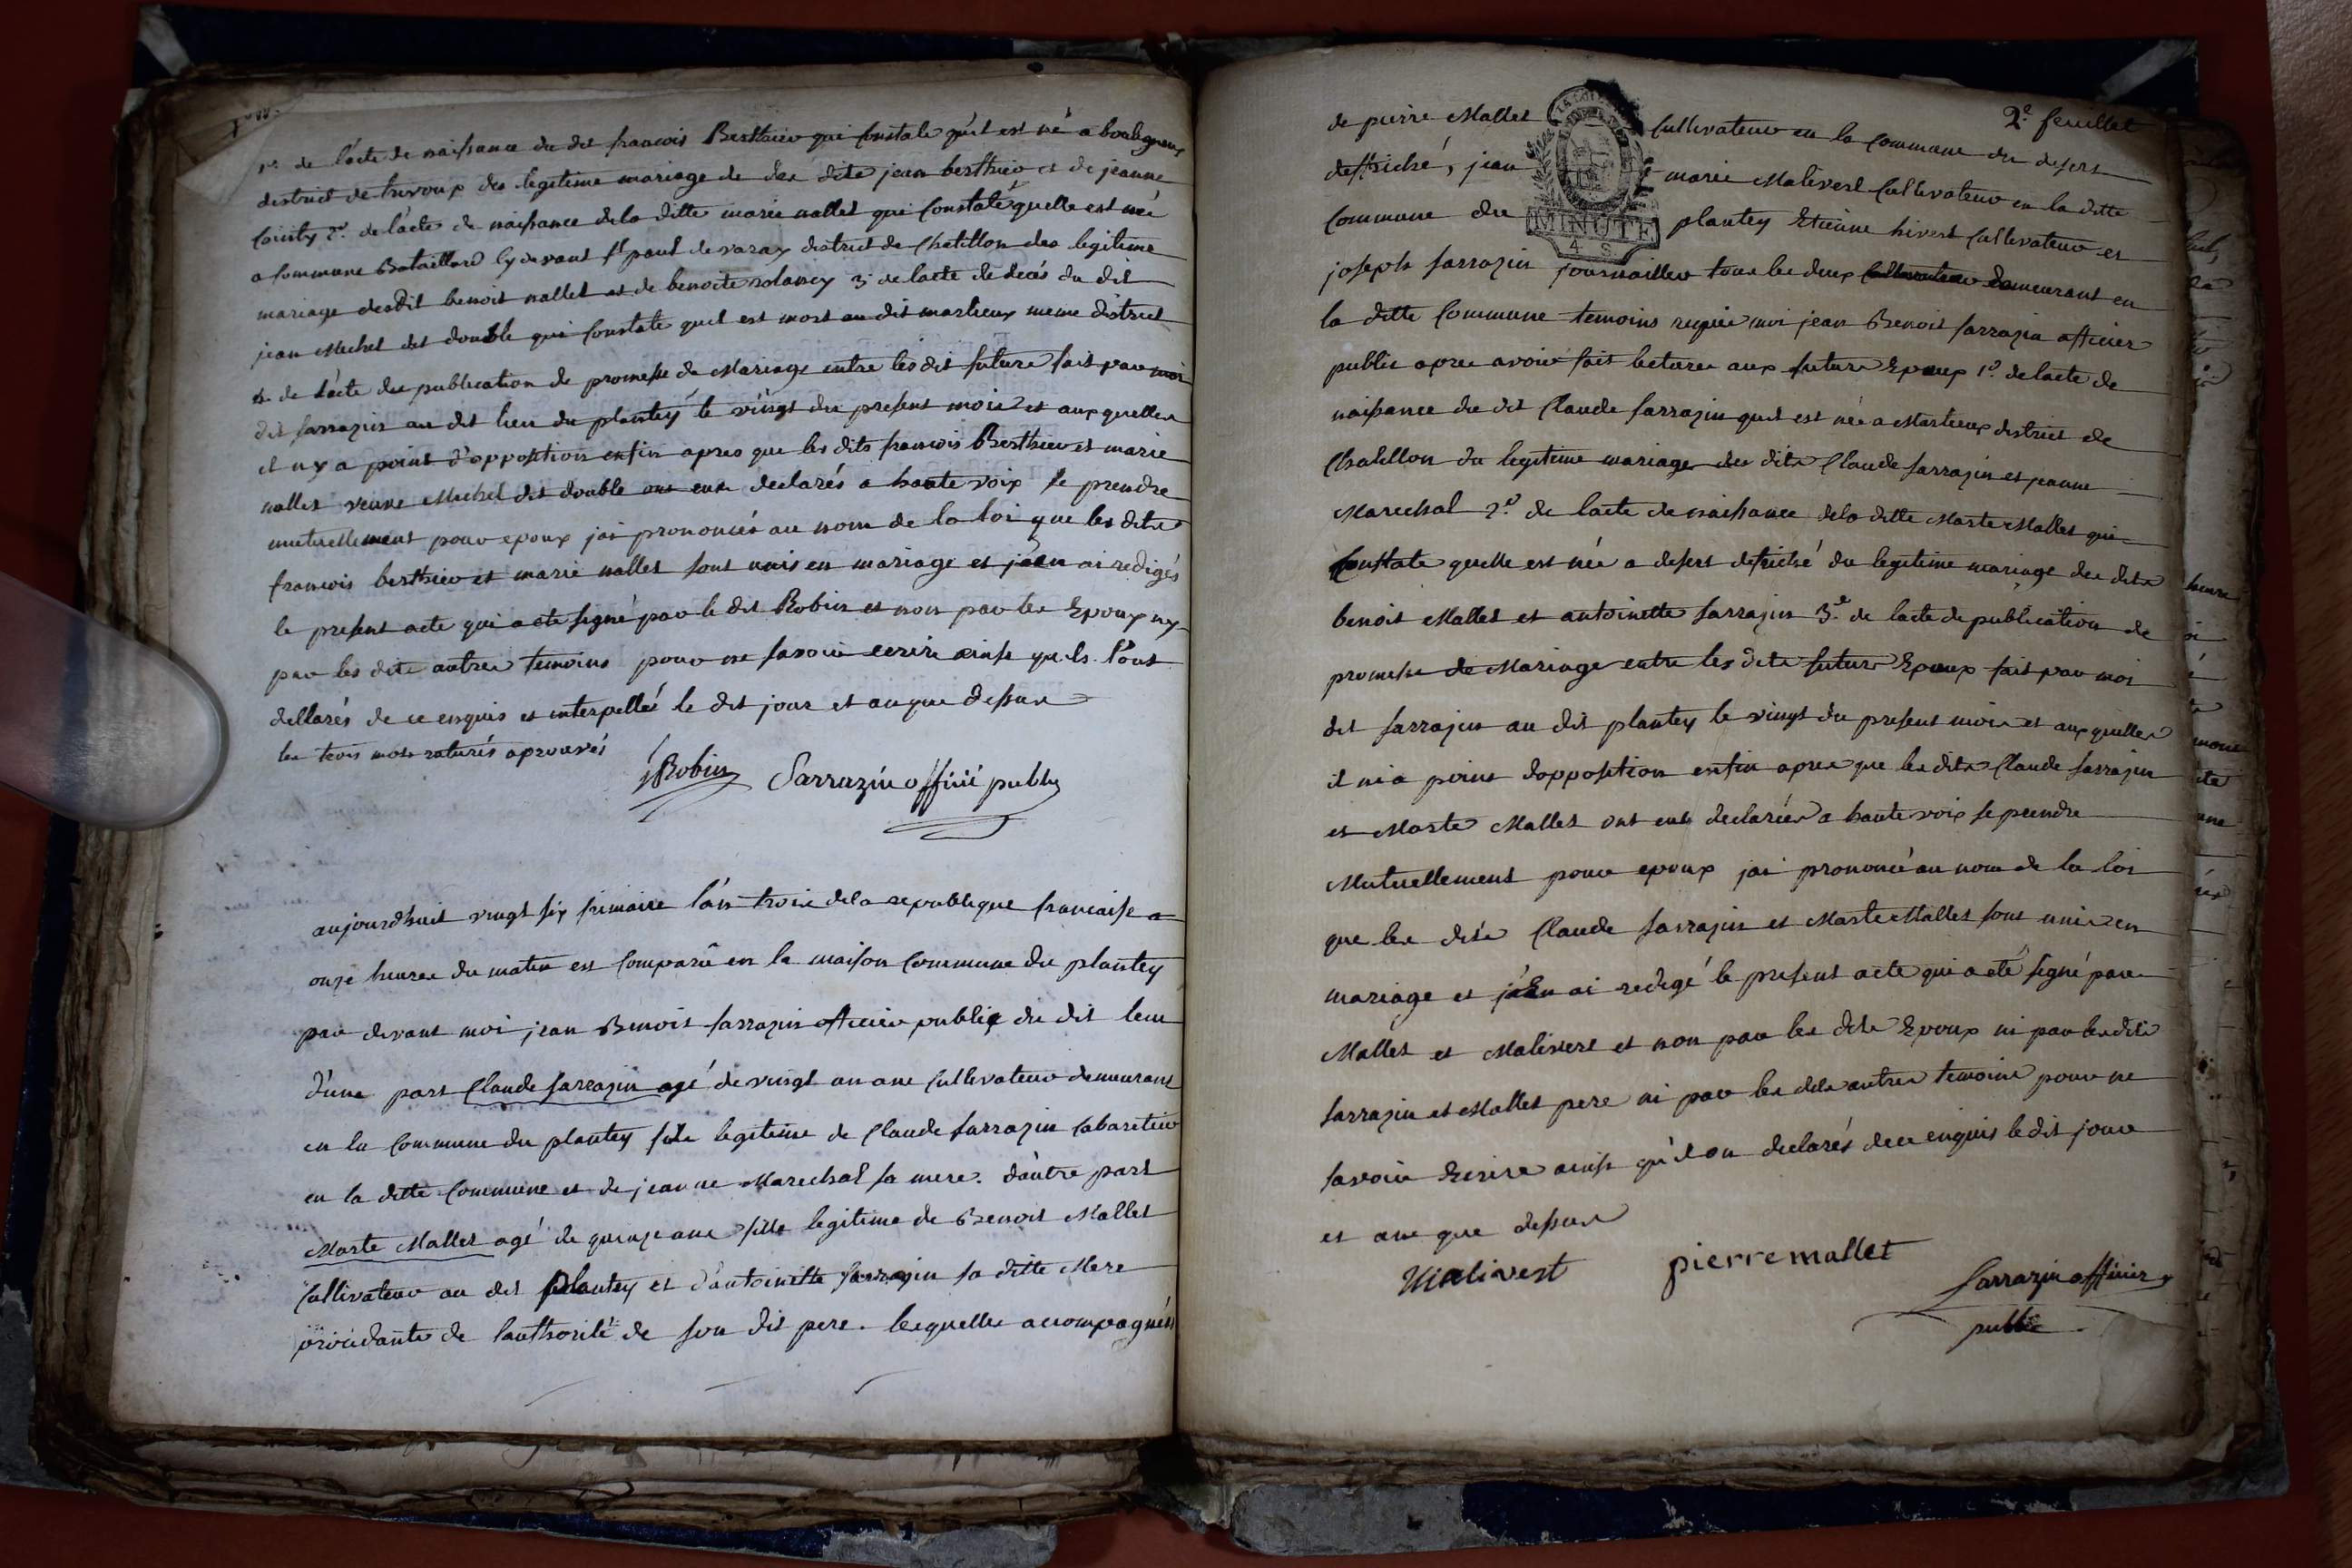 1º. de l'acte de naissance du dit francois Berthier qui constate qu'il est né a bouligneux
district de trevoux des legitime mariage de des dits jean berthier et de jeanne
2º. de l'acte de naissance de la ditte marie mallet qui constate quelle est née
a commune Bataillard cy devant st paul de varax district de Chatillon des legitime
mariage desdit benoit mallet et de benoite 3º de lacte de decés du dit
jean Michel dit double qui constate quil est mort au dit marlieux meme district
4º de l'acte de publication de promesse de Mariage entre les dit future fait par moi
dit sarrazin au dit lieu du plantey le vingt du present mois et aux quelles
il n'y a point d'opposition enfin apres que les dits francois Berthier et marie
mallet veuve Michel dit double ont eux declarés a haute voix se prendre
mutuellement pour epoux jai prononcés au nom de la loi que les dits
francois berthier et marie mallet sont unis en mariage et j'en ai redigés
le present acte qui a eté signé par le dit Robin et non par les Epoux ny
par les dits autres temoins pour ne savoir ecrire ainsi qu'ils l'ont
dellarés de ce enquis et interpellés le dit jour et an que dessus
les trois mots raturés aprouvés
JRobin Sarrazin offisié public
aujourdhuit vingt six frimaire l'an trois dela republique francaise a
onze heures du matin est Comparû en la maison Commune du plantey
par devant moi jean Benoit sarrazin officier public du dit lieu
d'une part Claude sarrazin agé de vingt un ans Cultivateur demeurant
en la Commune du plantey fils legitime de Claude sarrazin Cabaretier
en la ditte Commune et de jeanne Marechal sa mere. d'autre part
Marte Mallet agé de quinze ans fille legitime de Benoit Mallet
Cultivateur au dit plantey et d'antoinette sarrazin sa ditte Mere
de l'authorité de son dit pere. lesquelles accompagnés
2e. feuillet
de pierre Mallet Cultivateur en la Commune du desert
deffriché, jean marie Malivert Cultivateur en la ditte
Commune du plantey Etienne hivert Cultivateur et
MINUTE
4 S
joseph sarrazin journaillier tous les deux demeurant en
la ditte Commune temoins requis moi jean Benoit sarrazin officier
public apres avoir fait lecture aux future Epoux 1º. de lacte de
naissance du dit Claude sarrazin quil est née a Marlieux district de
Chatillon du legitime mariage des dits Claude sarrazin et jeanne
Marechal 2º. de lacte de naissance dela ditte Marte Mallet qui
Constate quelle est née a desert defriché du legitime mariage des dits
benoit Mallet et antoinette sarrazin 3e. de lacte de publication de
promesse de Mariage entre les dits future Epoux fait par moi
dit sarrazin au dit plantey le vingt du present mois et aux quelles
il ni a point dopposition enfin apres que les dits Claude sarrazin
et Marte Mallet ont eux declarées a haute voix se prendre
Mutuellement pour epoux jai prononcé au nom de la loi
que les dits Claude sarrazin et Marte Mallet sont unis en
mariage et j'En ai redigé le present acte qui a eté signé par
Mallet et Malivert et non par les dits Epoux ni par les dits
sarrazin et Mallet pere ni par les dits autres temoins pour ne
savoir Ecrire ainsi qu'il on declarés de ce enquis le dit jour
et an que dessus
Malivert pierre mallet
sarrazin officier
public